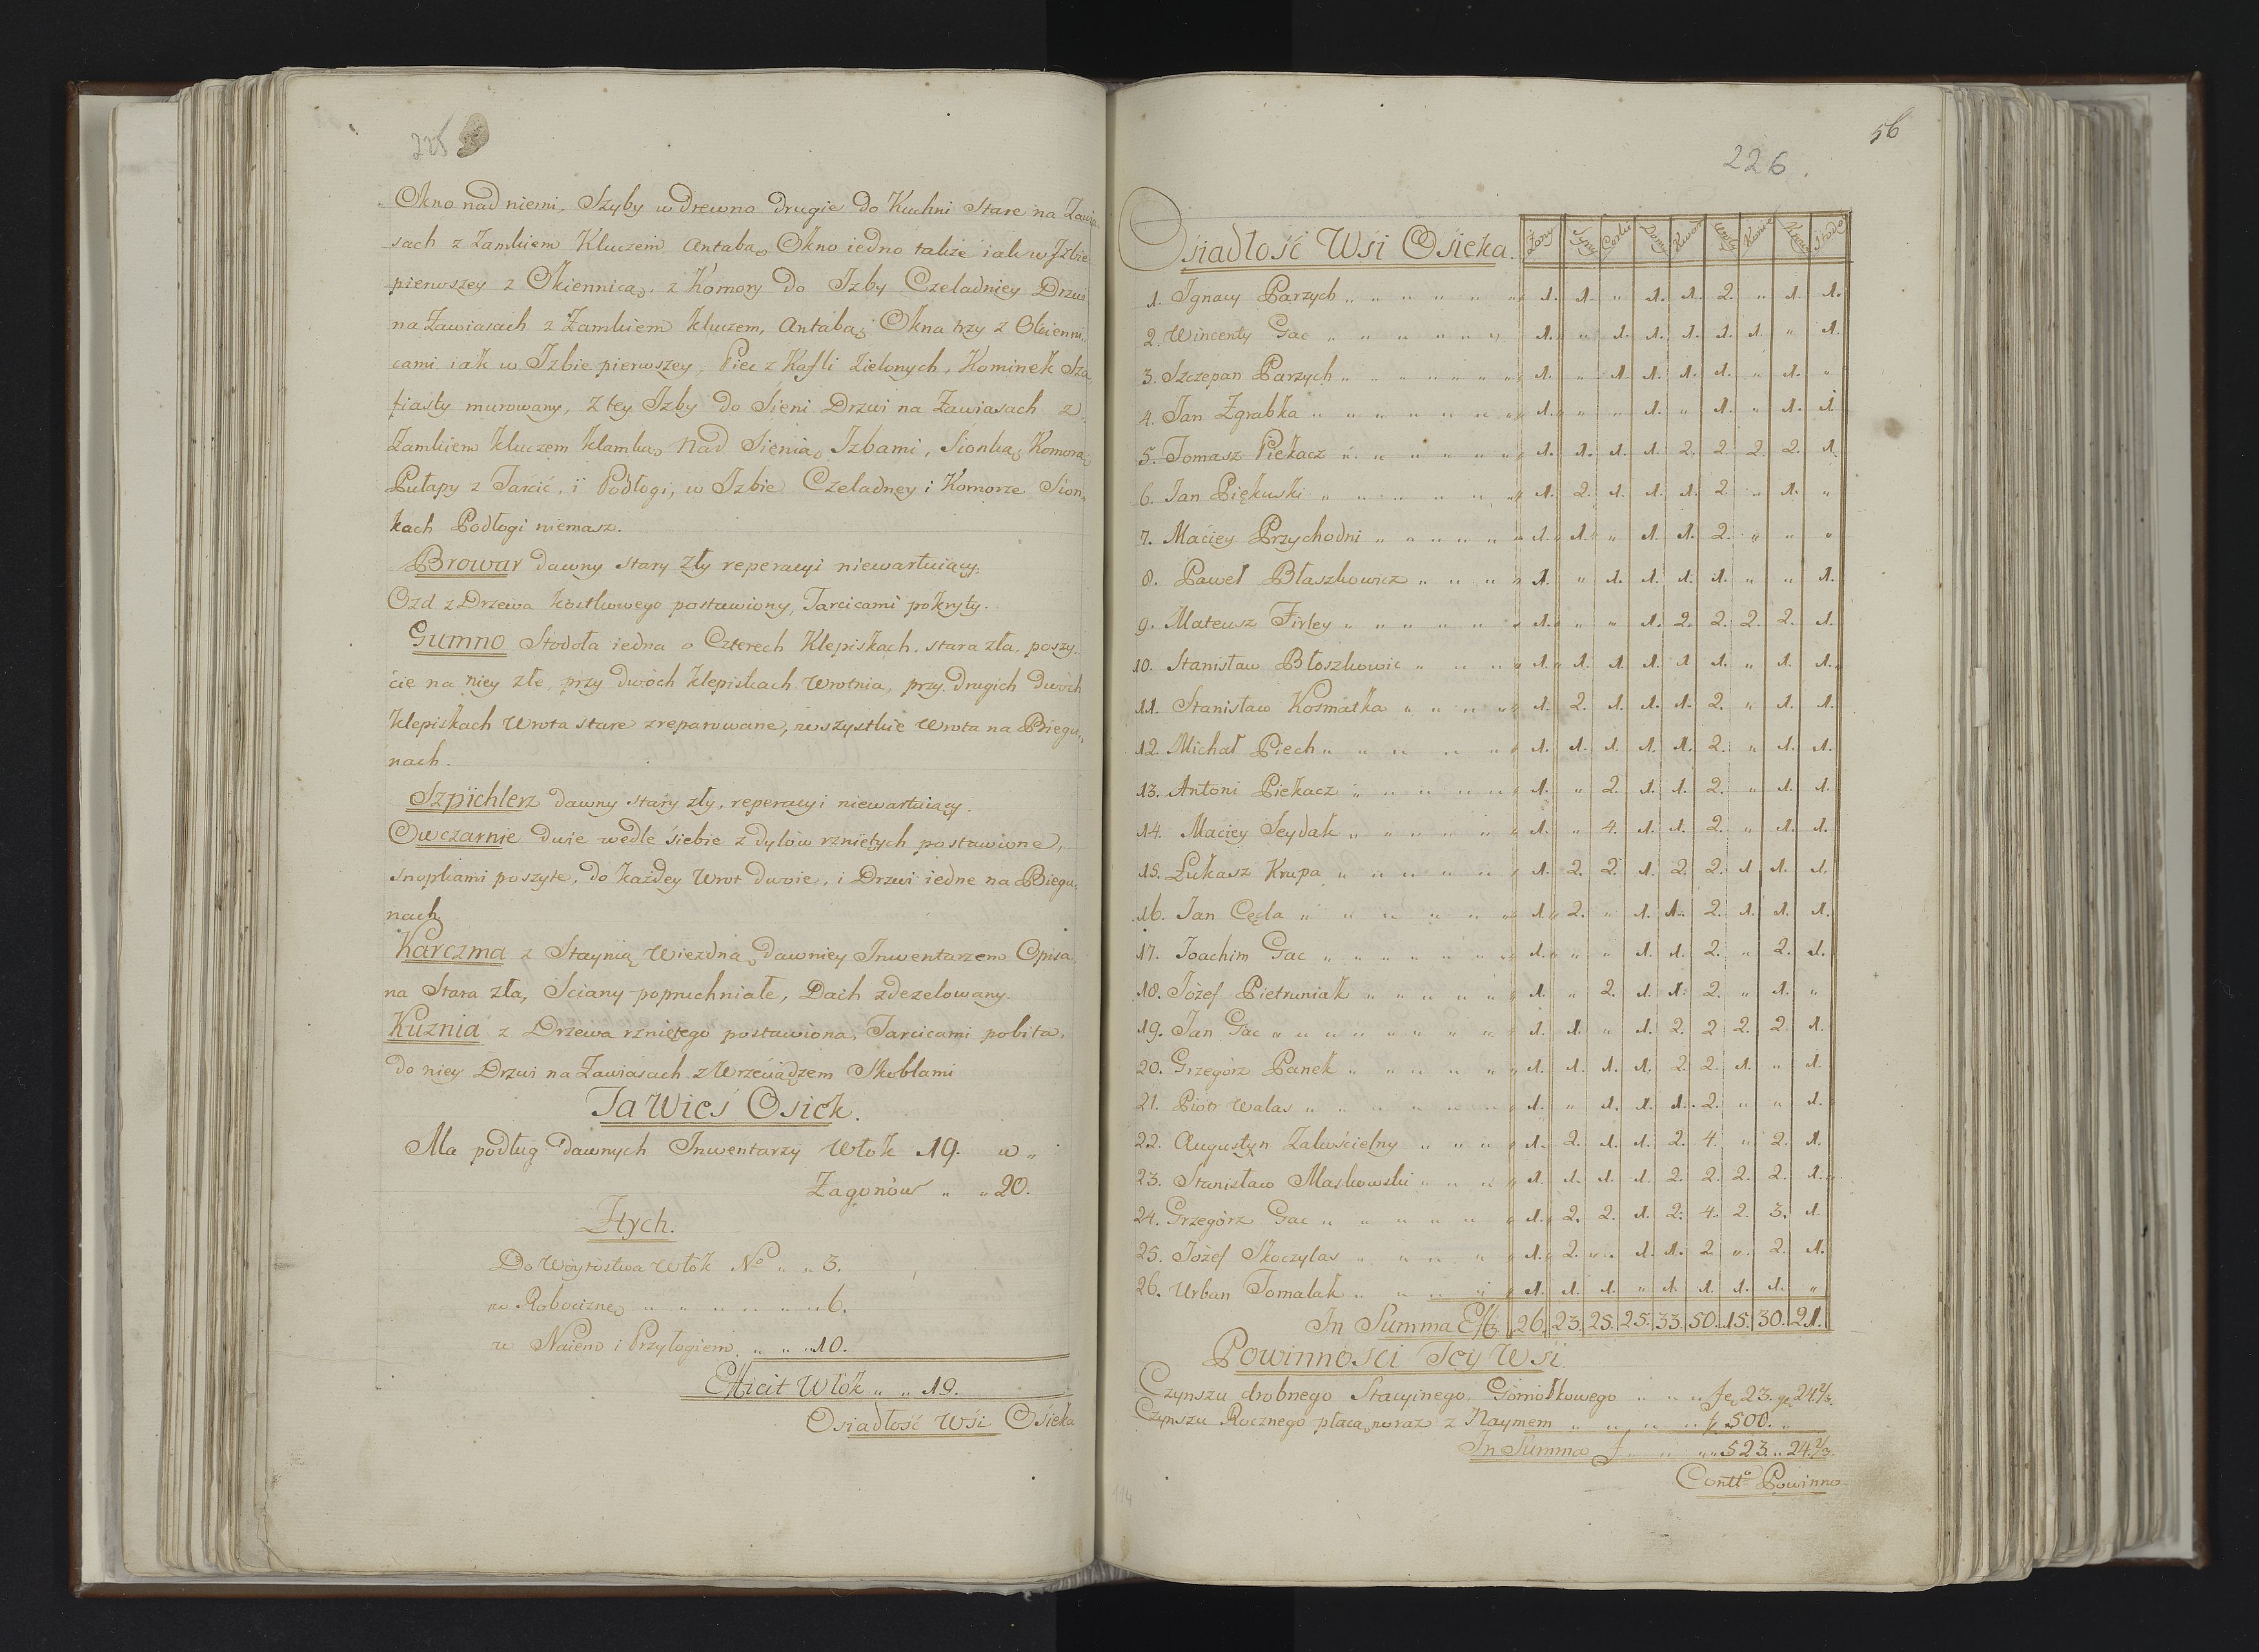 225
Okno nad niemi, Szyby w drewno drugie do Kuchni Stare na Zawia-
sach z Zamkiem Kluczem Antabą, Okno iedno takie iak w Izbie
pierwszey z Okiennicą, z Komory do Izby Czeladniey Drzwi
na Zawiasach z Zamkiem kluczem, Antabą, Okna trzy z Okienni„
cami iak w Izbie pierwszey, Piec z Kafli zielonych, Kominek Sza
fiasty murowany, z tey Izby do Sieni Drzwi na Zawiasach z
Zamkiem kluczem klamką, Nad Sienią, Izbami, Sionką, Komorą
Pułapy z Tarcić, i Podłogi, w Izbie Czeladney i Komorze Sion„
kach Podłogi niemasz.
Browar dawny stary zły reperacyi niewartuiący.
Ozd z Drzewa kostkowego postawiony, Tarcicami pokryty.
Gumno Stodoła iedna o Czterech Klepiskach, stara zła, poszy„
cie na niey złe, przy dwóch klepiskach Wrotnia, przy drugich dwóch
klepiskach Wrota stare zreparowane, wszystkie Wrota na Biegu„
nach.
Szpichlerz dawny stary zły, reperacyi niewartuiący.
Owczarnie dwie wedle siebie z dylów rzniętych postawione,
snopkami poszyte, do każdey Wrot dwoie, i Drzwi iedne na Biegu„
nach
Karczma z Staynią Wiezdną, dawniey Inwentarzem Opisa„
na Stara zła, Sciany popruchniałe, Dach zdezelowany.
Kuznia z Drzewa rzniętego postawiona, Tarcicami pobita,
do niey Drzwi na Zawiasach z Wrzeciądzem Skoblami
Ta Wieś Osiek.
Ma podług dawnych Inwentarzy Włók 19. „
Zagonów „ „ 20.
Z tych.
Do Wóytostwa Włók No „ „ 3.
w Robociznę „ „ „ „ „ „ 6.
w Naiem i Przyłogiem „ „ „ 10.
Efficit Włók „ „ 19.
Osiadłość Wsi Osieka
56
226.
Osiadłość Wsi Osieka. Żony Syny Corki Domy Woły Konie Krowy Stodo
1. Ignacy Parzych „ „ „ „ „ „ 1. 1. „ 1. 1. 2. „ 1. 1.
2. Wincenty Gac „ „ „ „ „ „ 1. „ 1. 1. 1. 1. 1. „ 1.
3. Szczepan Parzych „ „ „ „ „ „ 1. „ 1. 1. 1. 1. „ 1. „
4. Jan Zgrabka „ „ „ „ „ „ 1. „ „ 1. „ 1. „ 1. 1.
5. Tomasz Piekacz „ „ „ „ „ „ 1. 1. 1. 1. 2. 2. 2. 2. 1.
6. Jan Piękuski „ „ „ „ „ „ 1. 2. 1. 1. 1. 2. „ 1. „
7. Maciey Przychodni „ „ „ „ „ 1. 1. „ 1. 1. 2. „ „ „
8. Paweł Błaszkowicz „ „ „ „ 1. „ 1. 1. 1. 1. „ „ 1.
9. Mateusz Firley „ „ „ „ „ „ 1. „ „ 1. 2. 2. 2. 2. 1.
10. Stanisław Błoszkowic „ „ „ „ 1. 1. 1. 1. 1. 1. „ 1. 1.
11. Stanisław Kosmatka „ „ „ „ 1. 2. 1. 1. 1. 2. „ 1. 1.
12. Michał Piech „ „ „ „ „ „ 1. 1. 1. 1. 1. 2. „ 1. 1.
13. Antoni Piekacz „ „ „ „ „ „ 1. „ 2. 1. 1. 2. „ 1. 1.
14. Maciey Seydak „ „ „ „ „ „ 1. „ 4. 1. 1. 2. „ 1. 1.
15. Łukasz Krupa „ „ „ „ „ „ 1. 2. 2. 1. 2. 2. 1. 1. 1.
16. Jan Cęgla „ „ „ „ „ „ 1. 2. „ 1. 1. 2. 1. 1. 1.
17. Joachim Gac „ „ „ „ „ „ 1. „ „ 1. 1. 2. „ 2. 1.
18. Józef Pietruniak „ „ „ „ „ „ 1. „ 2. 1. 1. 2. „ 1. „
19. Jan Gac „ „ „ „ „ „ „ 1. 1. „ 1. 2. 2. 2. 2. 1.
20. Grzegórz Panek „ „ „ „ „ „ 1. 1. 1. 1. 2. 2. 1. „ 1.
21. Piotr Walas „ „ „ „ „ „ 1. „ 1. 1. 1. 2. „ „ 1.
22. Augustyn Zakościelny „ „ „ 1. 2. 1. 1. 2. 4. „ 2. 1.
23. Stanisław Maskowski „ „ „ „ 1. 1. 1. 1. 2. 2. 2. 2. 1.
24. Grzegórz Gac „ „ „ „ „ „ 1. 2. 2. 1. 2. 4. 2. 3. 1.
25. Józef Skoczylas „ „ „ „ „ 1. 2. „ 1. 1. 2. „ 2. 1.
26. Urban Tomalak „ „ „ „ 1. 1. 1. „ 1. 1. 1. 1. „
In Summa Eff. 26. 23. 25. 25. 33. 50. 15. 30. 21.
Powinnosci Tey Wsi.
Czynszu drobnego Stacyinego Gomołkowego „ „ „ 23. gr. 24 2/3.
Czynszu Rocznego płacą, wraz z Naymem „ „ „ „ f. 500. „
In Summa f. „ „ 523. „ 24. 2/3.
Contto Powinno
114